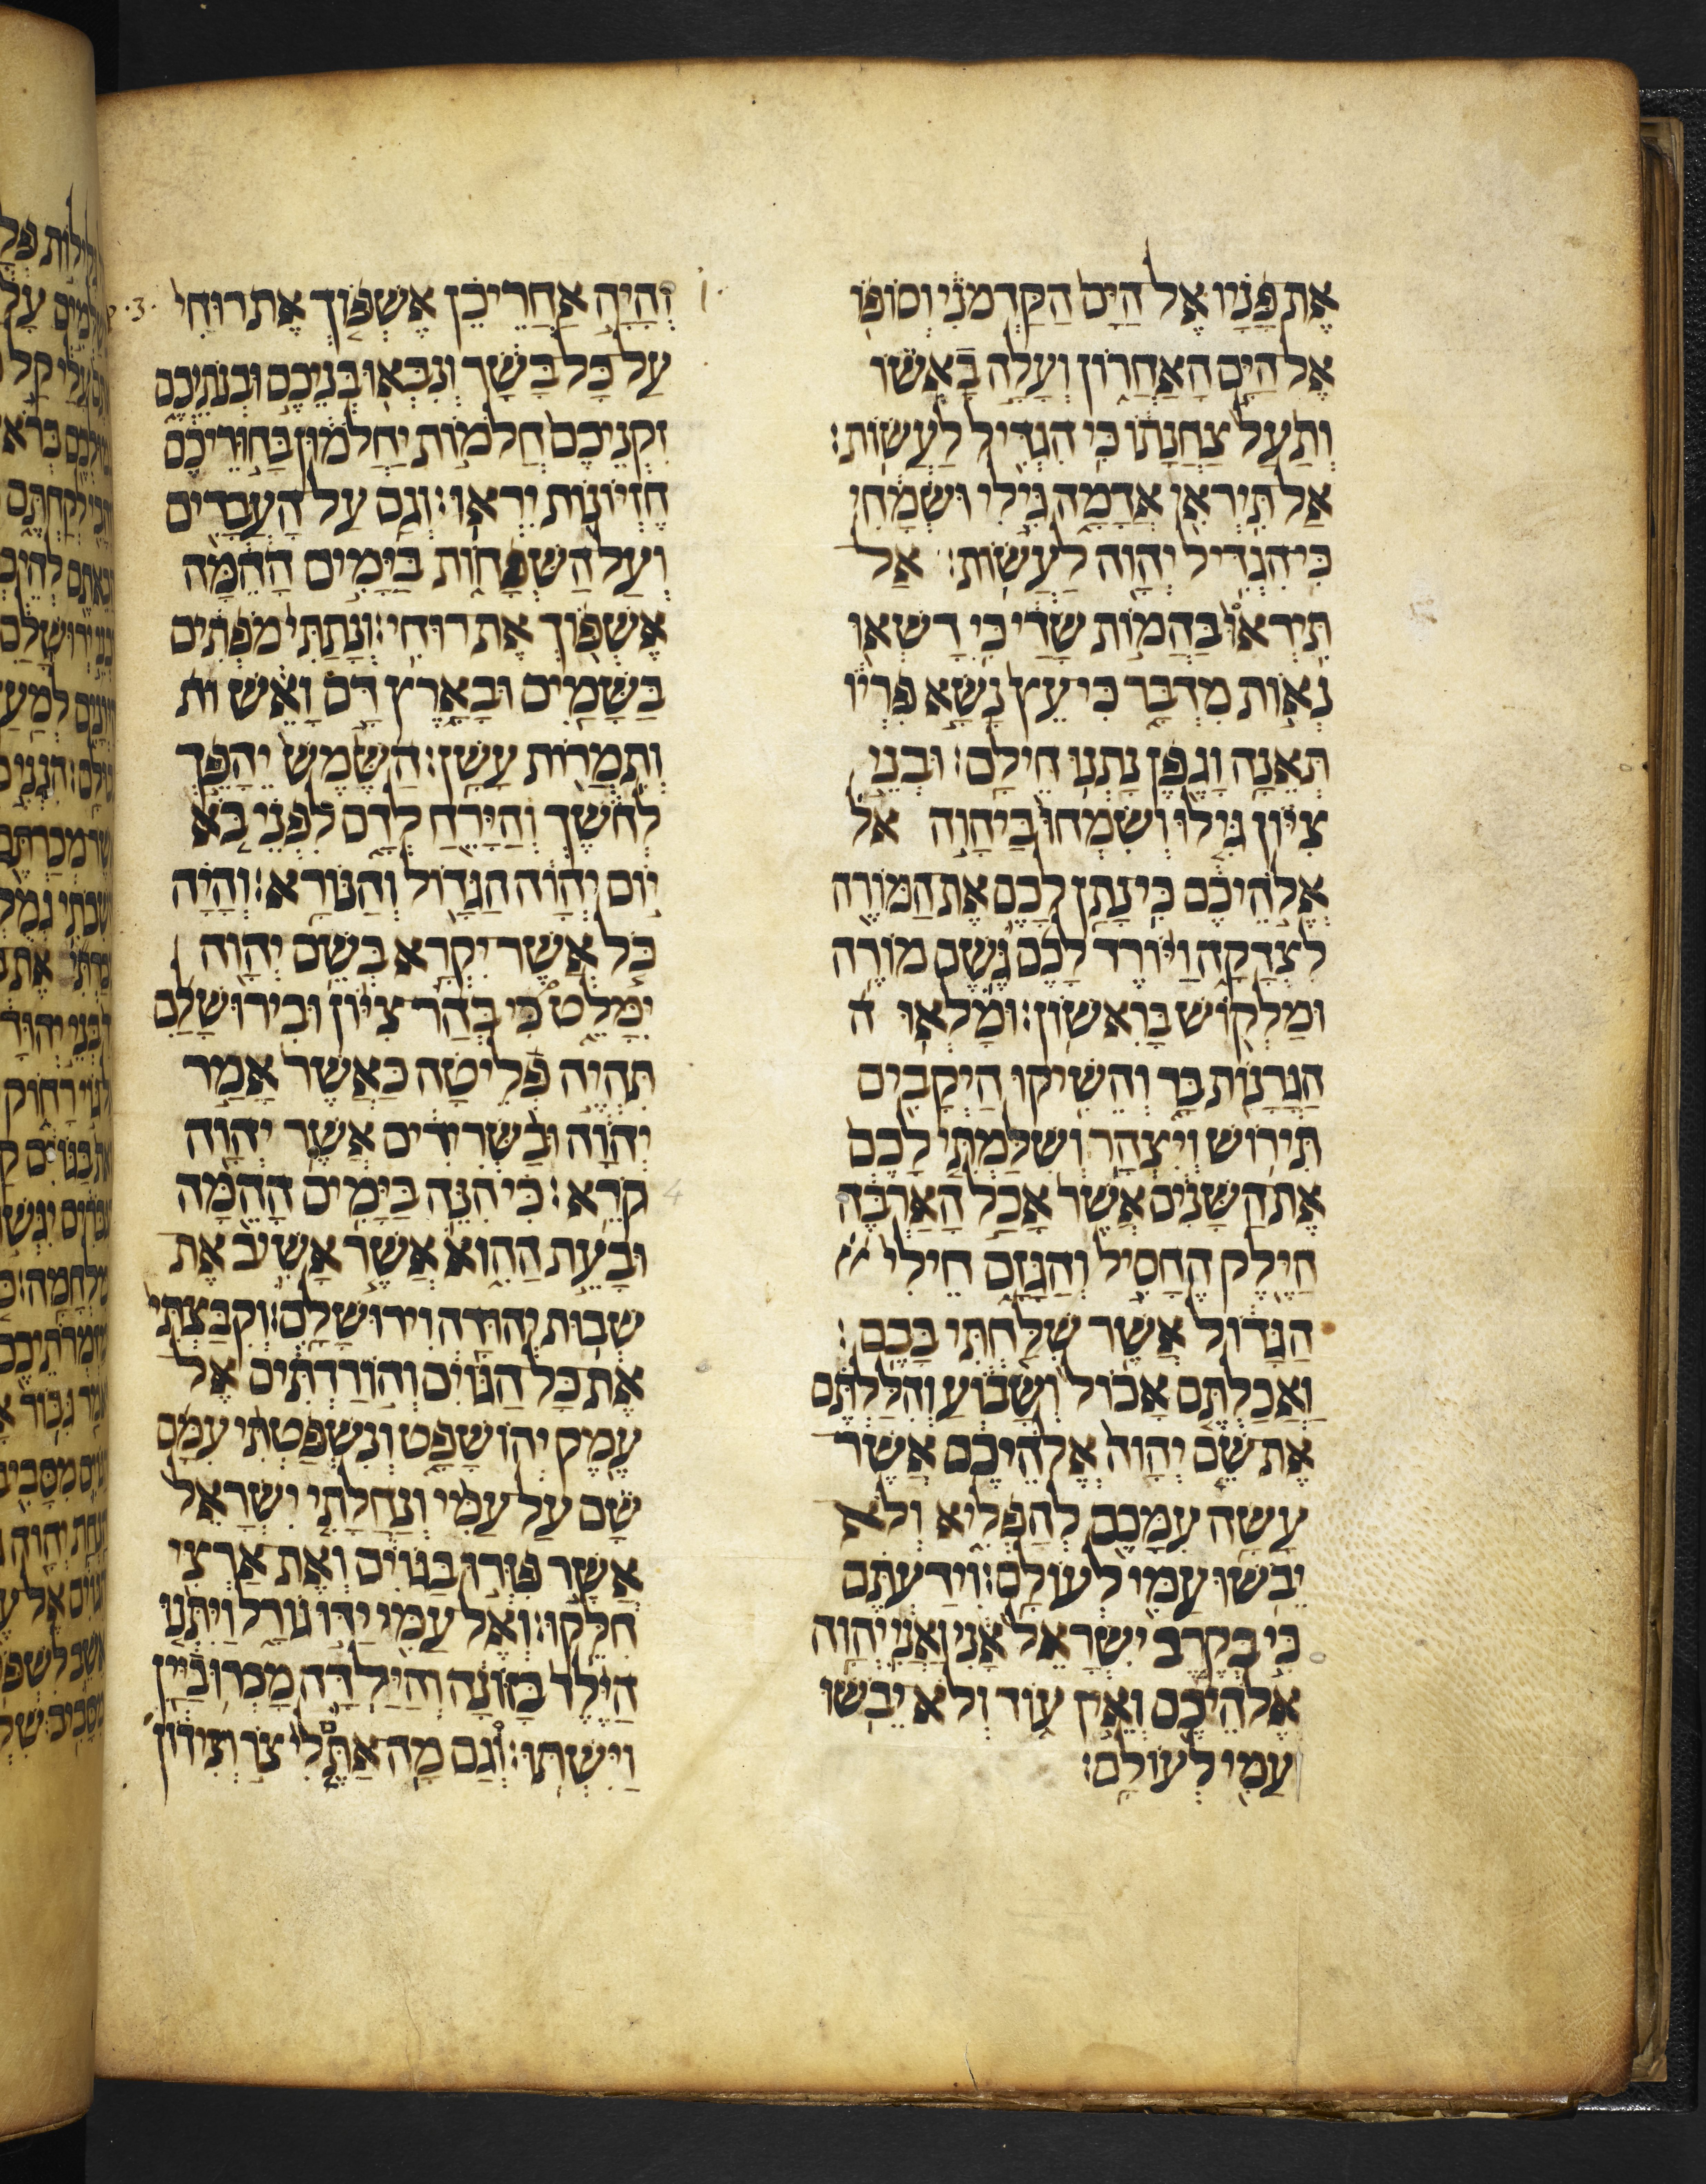 את פניו אל הים הקדמני וסופו
אל הים האחרון ועלה באשו
ותעל צחנתו כי הגדיל לעשות:
אל תיראי אדמה גילי ושמחי
כי הגדיל יהוה לעשות: אל
תיראו בהמות שדי כי דשאו
נאות מדבר כי עץ נשא פריו
תאנה וגפן נתנו חילם: ובני
ציון גילו ושמחו ביהוה אל
אלהיכם כי נתן לכם את המורה
לצדקה ויורד לכם גשם מורה
ומלקוש בראשון: ומלאו ה
הגרנות בר והשיקו היקבים
תירוש ויצהר ושלמתי לכם
את השנים אשר אכל הארבה
הילק החסיל והגזם חילי
הגדול אשר שלחתי בכם:
ואכלתם אכול ושבוע והללתם
את שם יהוה אלהיכם אשר
עשה עמכם להפליא ולא
יבשו עמי לעולם: וידעתם
כי בקרב ישראל אני ואני יהוה
אלהיכם ואין עוד ולא יבשו
עמי לעולם:
והיה אחרי כן אשפוך את רוחי 3.
על כל בשר ונבאו בניכם ובנתיכם
זקניכם חלמות יחלמון בחוריכם
חזיונות יראו: וגם על העבדים
ועל השפחות בימים ההמה
אשפוך את רוחי: ונתתי מפתים
בשמים ובארץ דם ואש ות
ותמרות עשן: השמש יהפך
לחשך והירח לדם לפני בא
יום יהוה הגדול והנורא: והיה
כל אשר יקרא בשם יהוה
ימלט כי בהר ציון ובירושלם
תהיה פליטה כאשר אמר
יהוה ובשרידים אשר יהוה
קרא: כי הנה בימים ההמה 4
ובעת ההוא אשר אשיב את
שבות יהודה וירושלם: וקבצתי
את כל הגוים והורדתים אל
עמק יהושפט ונשפטתי עמם
שם על עמי ונחלתי ישראל
אשר פזרו בגוים ואת ארצי
חלקו: ואל עמי ידו גורל ויתנו
הילד בזונה והילדה מכרו ביין
וישתו: וגם מה אתם לי צר וצידון